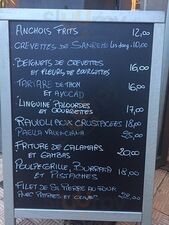 ANCHOIS FRITS 12,00
CREVETTES DE SANREMO 10,00
BEIGNETS DE CREVETTES
ET FLEURS DE COURGETTES 16,00
TARTARE DE THON
ET AVOCAD 16,00
LINGUINE PALOURDES
ET COURGETTES 17,00
RAVIOLI AUX CRUSTACES 18,00
PAELLA VALENCIANA 25,00
FRITURE DE CALAMARS
ET GAMBAS 20,00
POULPE GRILLE, BURRATA
ET PISTACHES 18,00
FILET DE ST PIERRE AU FOUR
AVEC PATATES ET